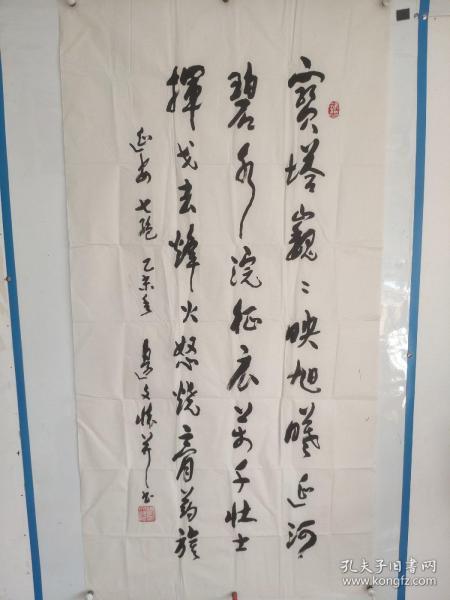 寶塔巍〻映旭曦延河
碧水浣征衣萬千壯士
揮戈去烽火怒燒膏藥旗
延安七絕 乙未冬 邊文懷并書
孔夫子旧书网
www.kongfz.com